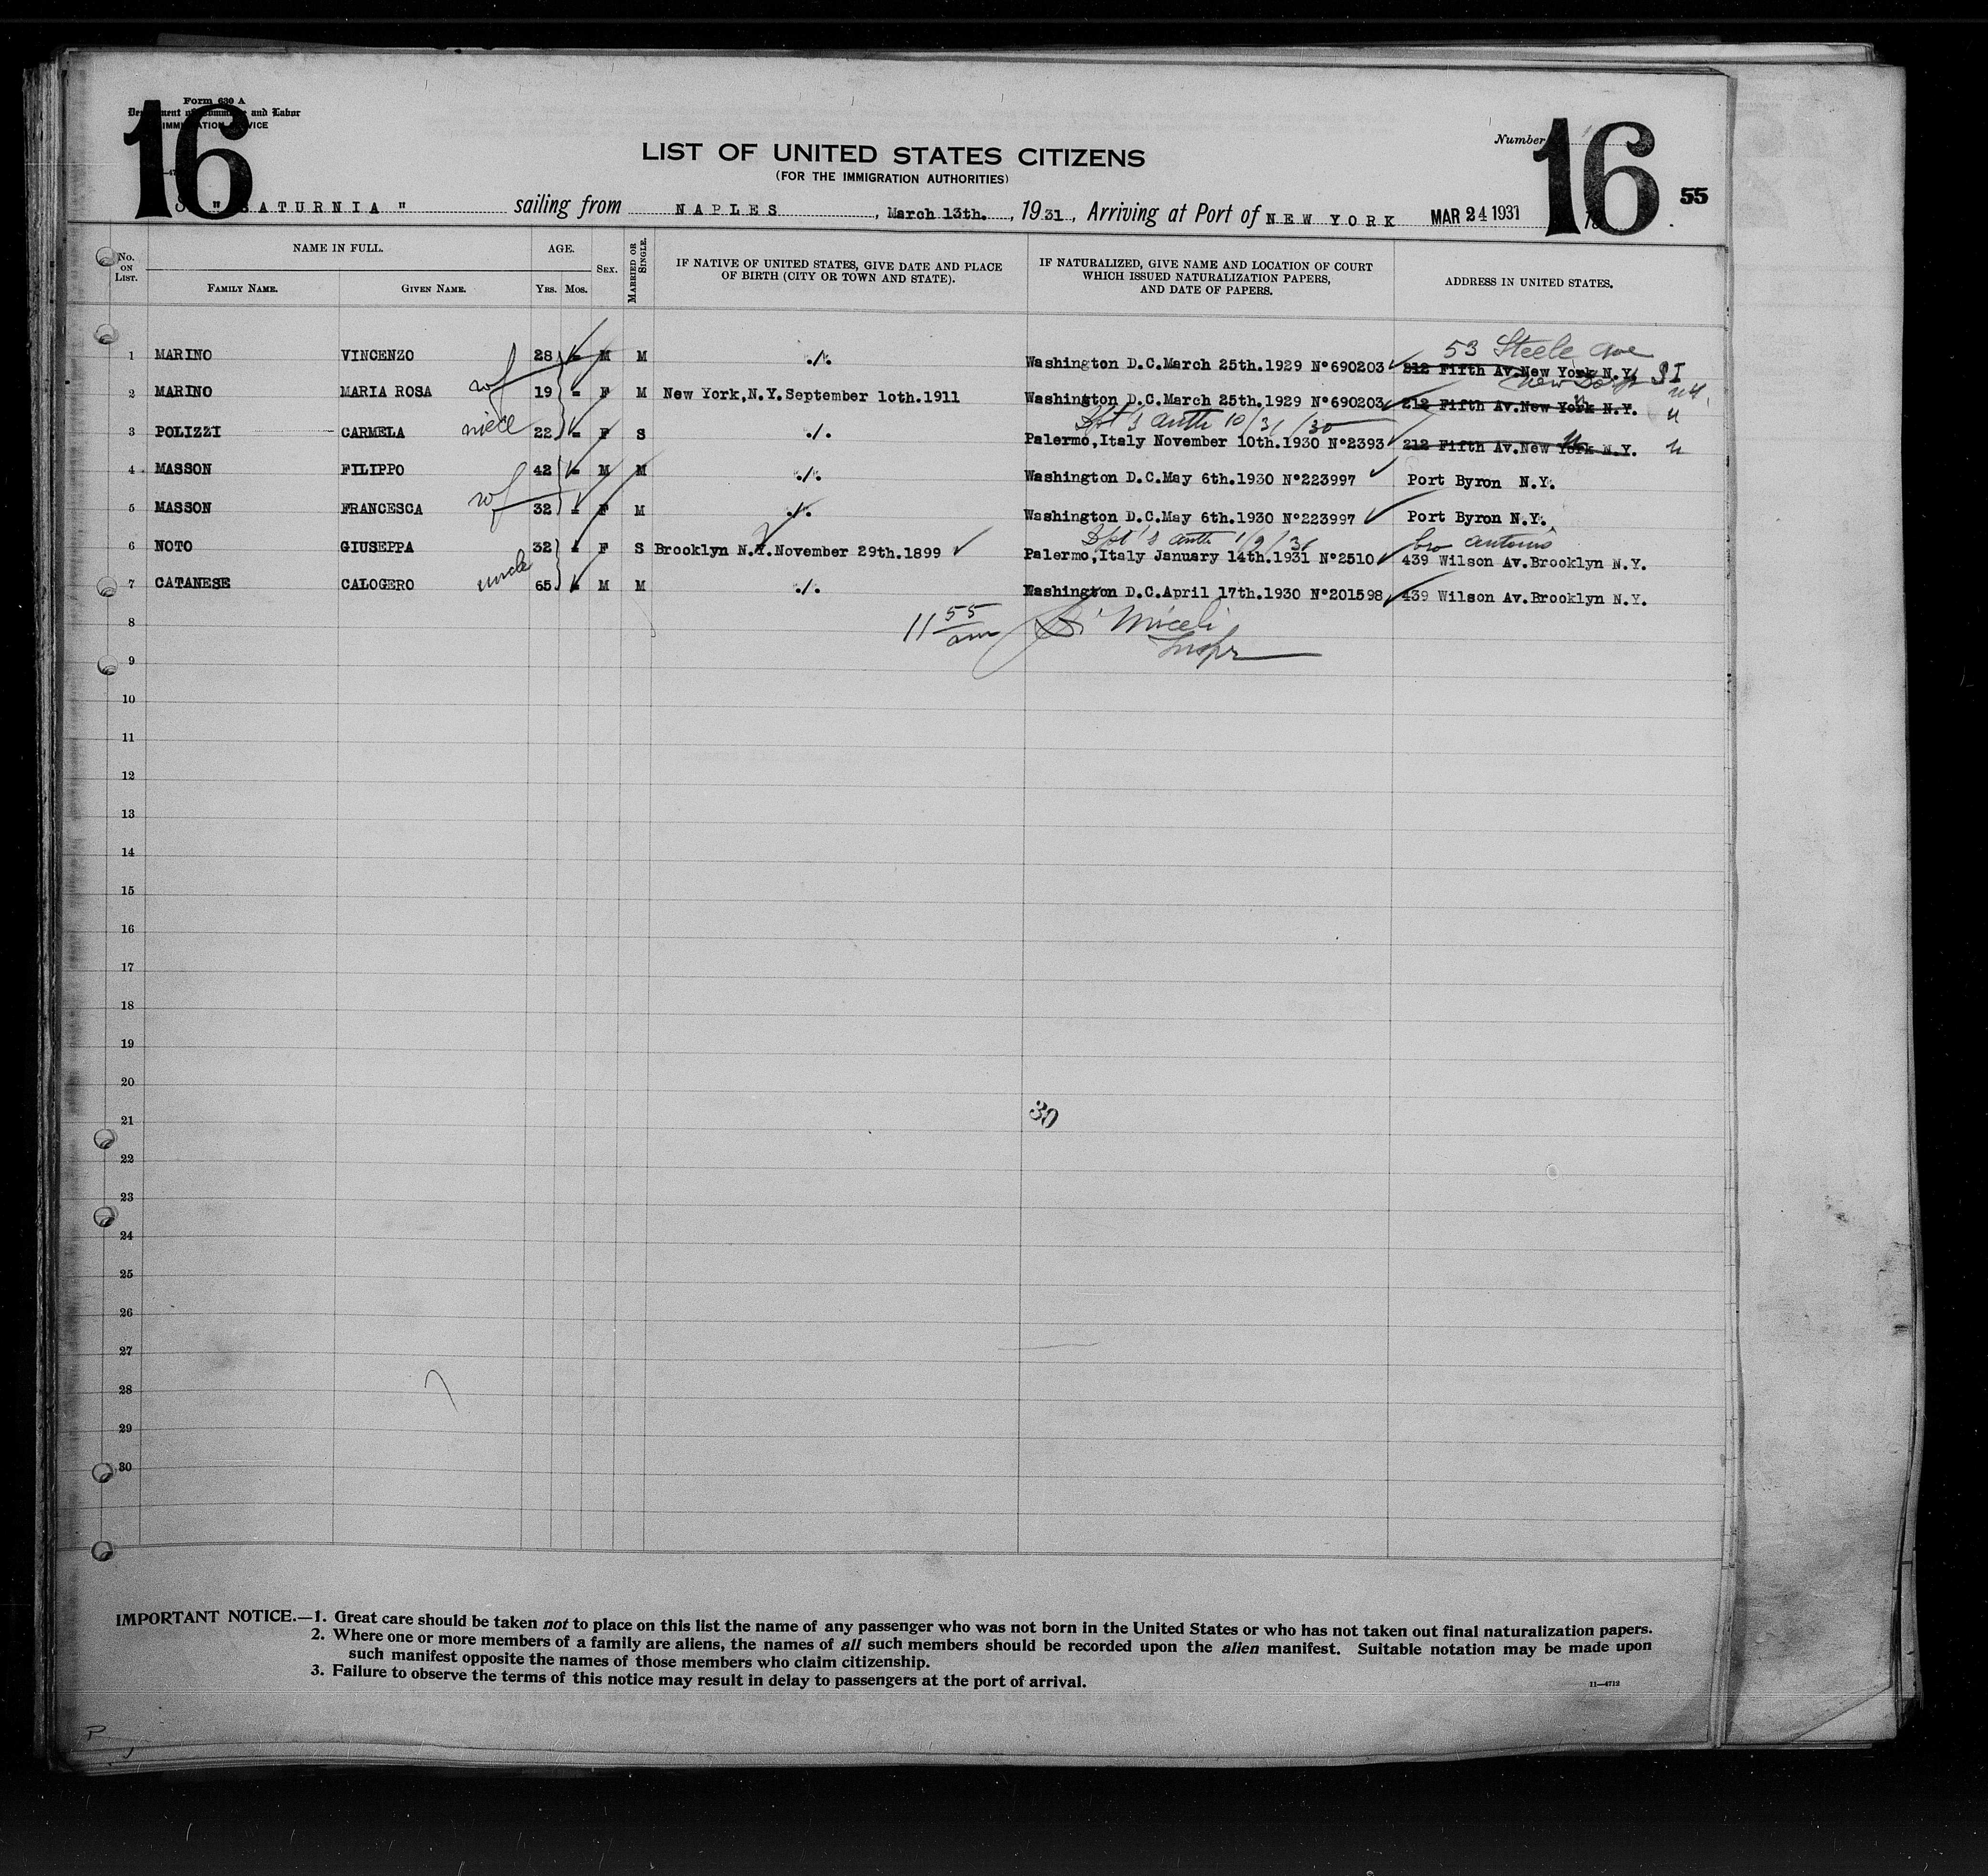 Form 630 A
Department of Commerce and Labor
IMMIGRATION SERVICE
16
Number 16
55
LIST OF UNITED STATES CITIZENS
(FOR THE IMMIGRATION AUTHORITIES)
S "SATURNIA" sailing from NAPLES, March 13th., 1931, Arriving at Port of NEW YORK MAR 24 1931
No. ON LIST.
NAME IN FULL.
FAMILY NAME.
GIVEN NAME.
AGE.
YRS. MOS.
SEX.
MARRIED OR SINGLE.
IF NATIVE OF UNITED STATES, GIVE DATE AND PLACE
OF BIRTH (CITY OR TOWN AND STATE).
IF NATURALIZED, GIVE NAME AND LOCATION OF COURT
WHICH ISSUED NATURALIZATION PAPERS,
AND DATE OF PAPERS.
ADDRESS IN UNITED STATES.
53 Steele Ave
1 MARINO VINCENZO 28 - M M ./. Washington D.C.March 25th.1929 N°690203 212 Fifth Av.New York N.Y. SI
New Dorp N.Y.
2 MARINO MARIA ROSA wf 19 - F M New York,N.Y.September 1oth.1911 Washington D.C.March 25th.1929 N°690203 212 Fifth Av.New York N.Y. "
Dpt's auth 10/31/30
3 POLIZZI CARMELA niece 22 - F S ./. Palermo,Italy November 10th.1930 N°2393 212 Fifth Av.New York N.Y. "
4 MASSON FILIPPO 42 - M M ./. Washington D.C.May 6th.1930 N°223997 Port Byron N.Y.
5 MASSON FRANCESCA wf 32 - F M ./. Washington D.C.May 6th.1930 N°223997 Port Byron N.Y.
Dpt's auth 1/9/31 bro Antonio
6 NOTO GIUSEPPA 32 - F S Brooklyn N.Y.November 29th.1899 Palermo,Italy January 14th.1931 N°2510 439 Wilson Av.Brooklyn N.Y.
7 CATANESE CALOGERO uncle 65 - M M ./. Washington D.C.April 17th.1930 N°201598 439 Wilson Av.Brooklyn N.Y.
8 11 55 am Di Miceli
Inspr
9
10
11
12
13
14
15
16
17
18
19
20
21 30
22
23
24
25
26
27
28
29
30
IMPORTANT NOTICE.—1. Great care should be taken not to place on this list the name of any passenger who was not born in the United States or who has not taken out final naturalization papers.
2. Where one or more members of a family are aliens, the names of all such members should be recorded upon the alien manifest. Suitable notation may be made upon
such manifest opposite the names of those members who claim citizenship.
3. Failure to observe the terms of this notice may result in delay to passengers at the port of arrival.
11—4712
P